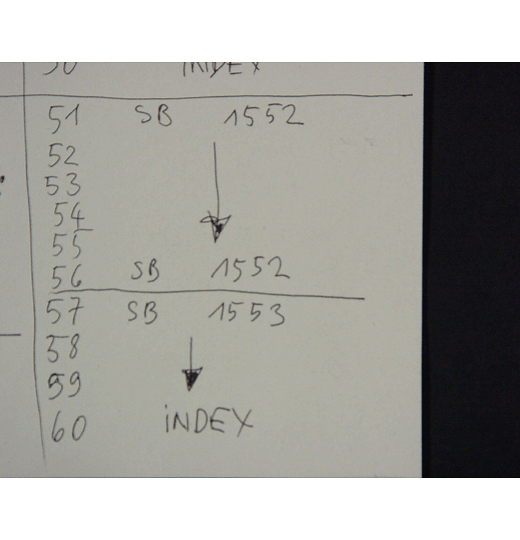 50 INDEX
51 SB 1552
52
53
54
55
56 SB 1552
57 SB 1553
58
59
60 iNDEX